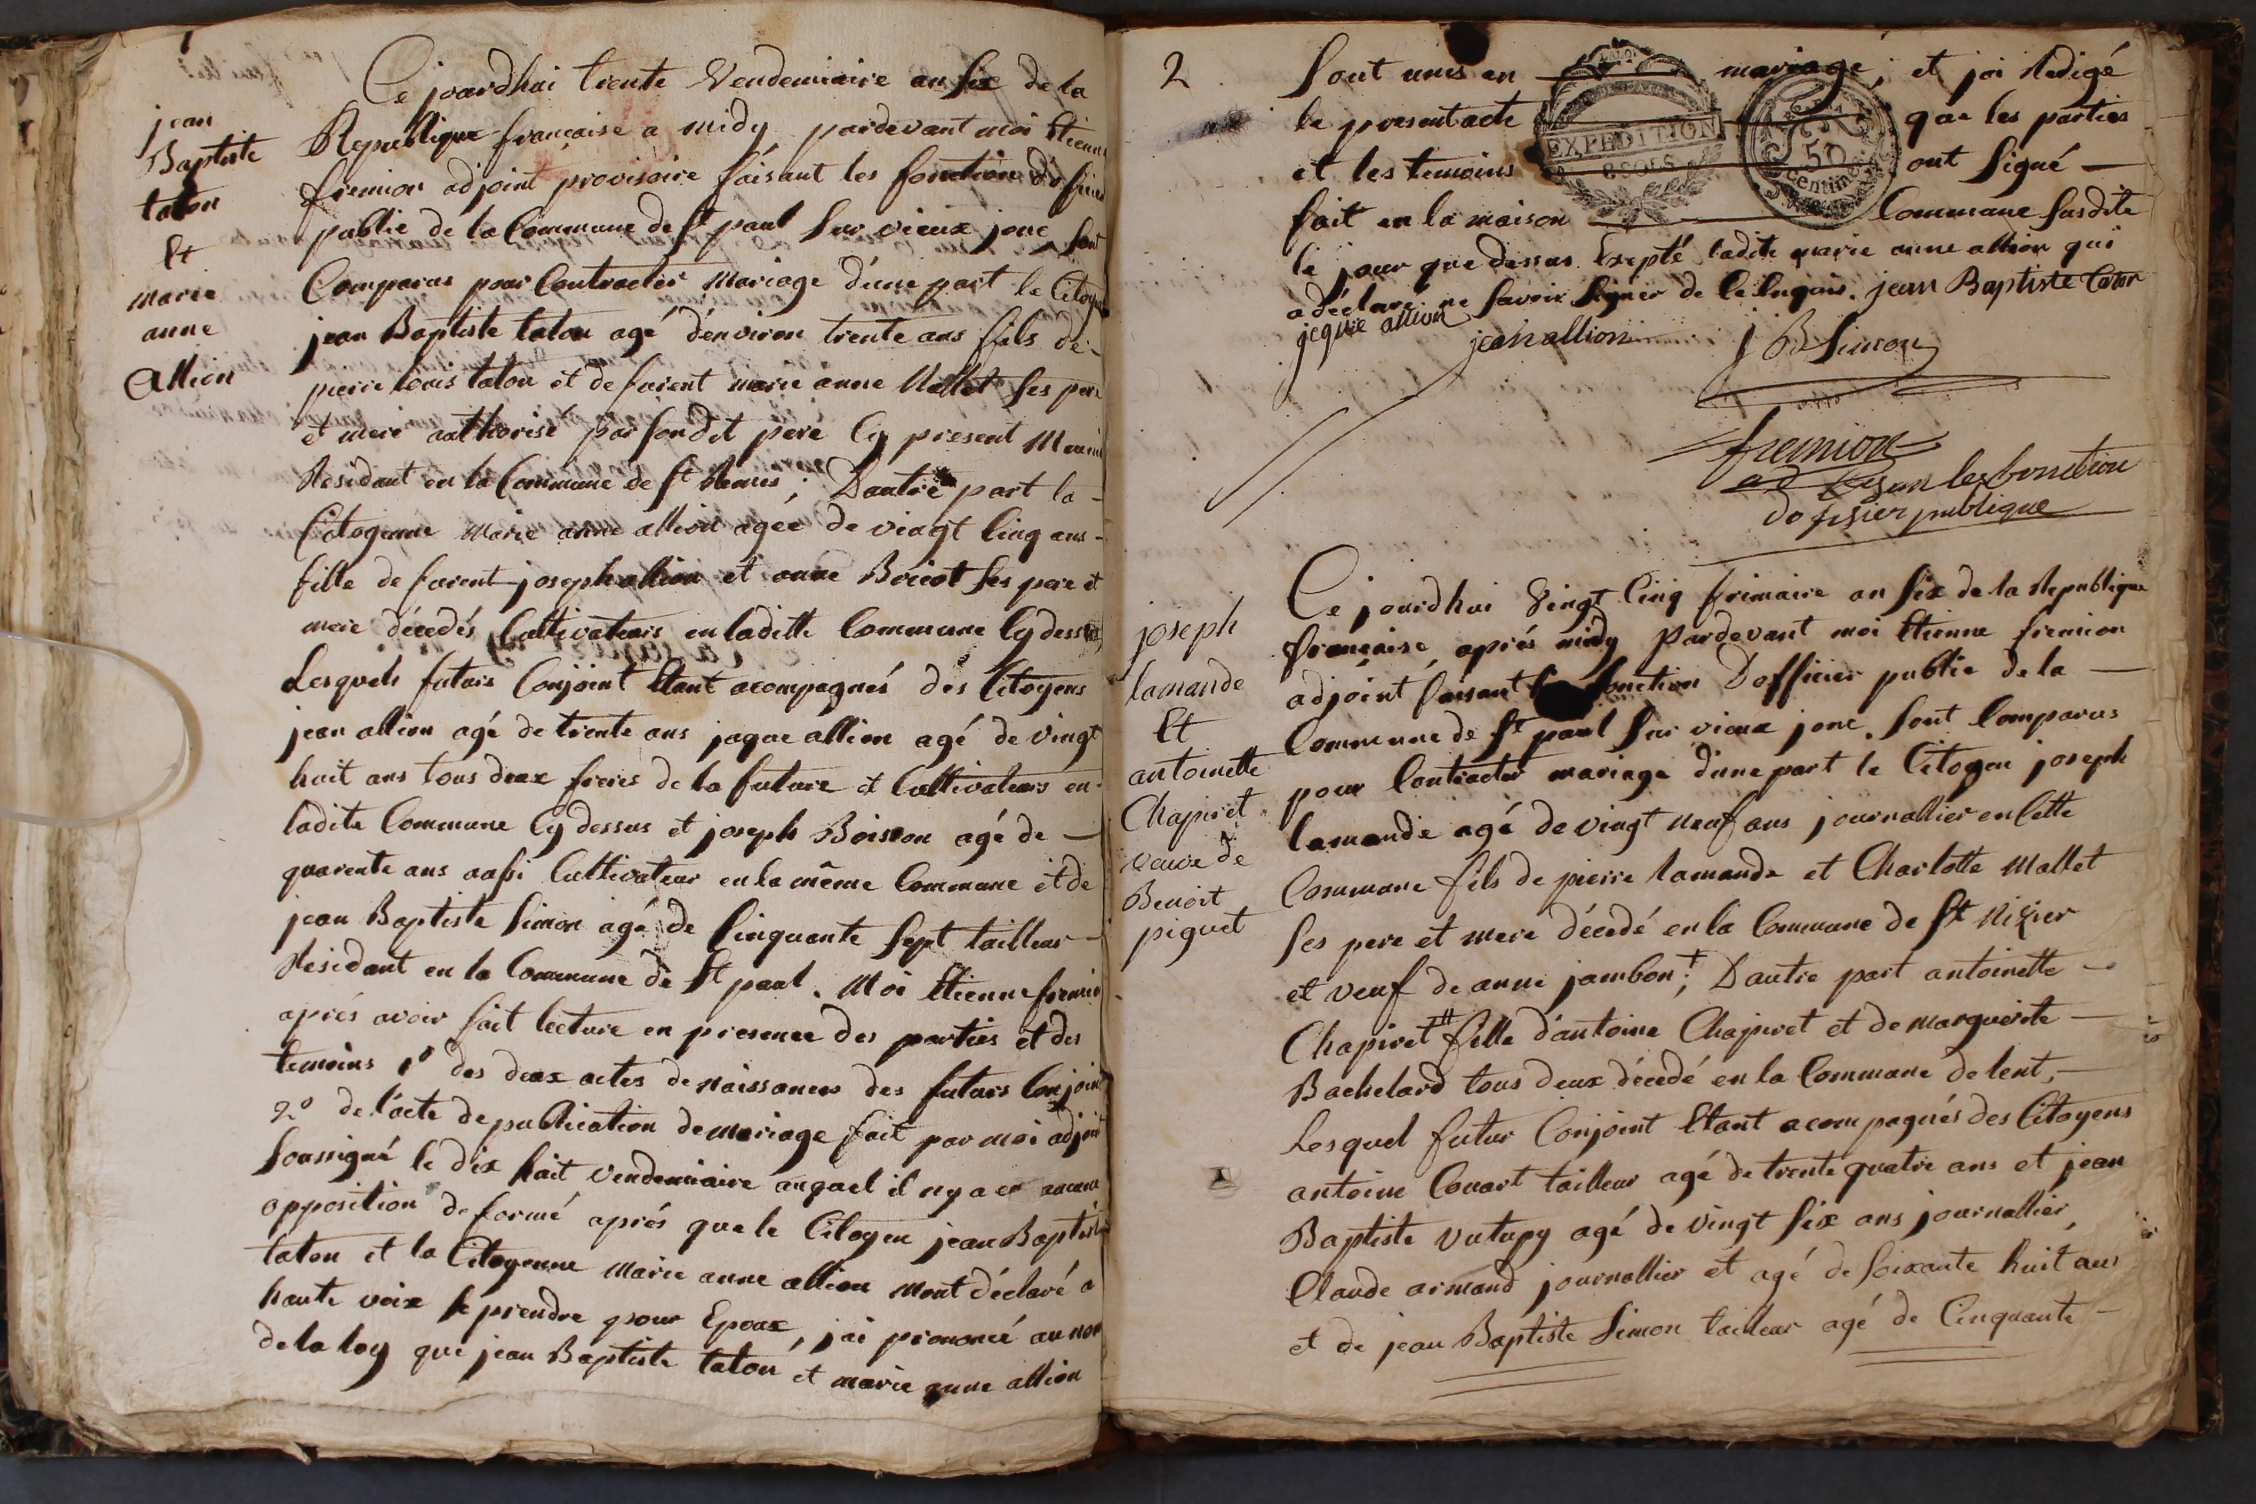 jean
Baptiste
taton
Et
marie
anne
Allion
Ce jourdhui trente Vendemiaire an six de la
Republique francaise a midy pardevant moi Etienne
fremion adjoint provisoire faisant les fonction dofficier
public de la Commune de St paul Sur vieux jonc, Sont
Comparus pour Contracter mariage d'une part le Citoyen
jean Baptiste taton agé d'environ trente ans fils de
pierre louis taton et de furent marie anne Mallet ses pere
et mere authorisé par sondit pere Cy present
Residant en la Commune de St Remis ; Dautre part la
Citoyenne Marie anne allion agée de vingt Cinq ans
fille de furent joseph allion et anne Boicot ses pere et
mere décedés Cultivateurs en laditte Commune Cy dessus
Lesquels futurs Conjoint Etant acompagnés des Citoyens
jean allion agé de trente ans jaque allion agé de vingt
huit ans tous deux freres de la future et Cultivateurs en
ladite Commune Cy dessus et joseph Boisson agé de
quarente ans aussi Cultivateur en la même Commune et de
jean Baptiste Simon agé de Cinquante Sept tailleur
Residant en la Commune de St paul. Moi Etienne fremion
aprés avoir fait lecture en presence des parties et des
temoins 1o des deux actes de naissances des futurs Conjoint
2o de l'acte de publication de mariage fait par moi adjoint
Soussigné le dix huit vendemiaire auquel il ny a eu aucune
opposition de formé aprés que le Citoyen jean Baptiste
taton et la Citoyenne marie anne allion mont déclaré a
haute voix se prendre pour Epoux, jai prononcé au nom
de la loy que jean Baptiste taton et marie anne allion
2
Sont unis en mariage, et jai Redigé
le present acte que les parties
et les temoins ont Signé
fait en la maison Commune Susdite
le jour que dessus Exepté ladite marie anne allion qui
a déclaré ne Savoir Signer de Ce Enquis. jean Baptiste taton
jeque allion jean allion J B Simon
EXPEDITION
8 SOLS
50
centimes
fremion
les fonction
do fisier publique
joseph
lamande
Et
antoinette
Chapiret
veuve de
Benoit
piguet
Ce jourdhui Vingt Cinq frimaire an Six de la Republique
francaise aprés midy Pardevant moi Etienne fremion
adjoint faisant fonction Dofficier public de la
Commune de St paul Sur vieux jonc. Sont Comparus
pour Contracter mariage d'une part le Citoyen joseph
lamande agé de vingt neuf ans journallier en Cette
Commune fils de pierre lamande et Charlotte Mallet
ses pere et mere décedé en la Commune de St Nizier
et veuf de anne jambon + ; D'autre part antoinette
Chapiret # fille d'antoine Chapiret et de marguerite
Bachelard tous deux décedé en la Commune de lent,
Lesquel futur Conjoint Etant acompagnés des Citoyens
antoine Couart tailleur agé de trente quatre ans et jean
Baptiste Vutupy agé de vingt Six ans journallier,
Claude armand journallier et agé de Soixante huit ans
et de jean Baptiste Simon tailleur agé de Cinquante